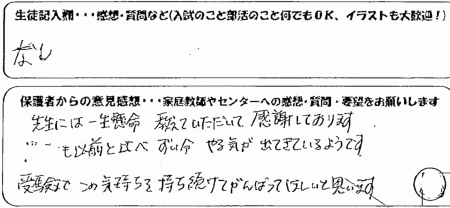 生徒記入欄・・・感想・質問など(入試のこと部活のこと何でもOK、イラストも大歓迎！)
なし
保護者からの意見感想・・・家庭教師やセンターへの感想・質問・要望をお願いします
先生には一生懸命 教えていただいて 感謝しております
も以前と比べ ずい分 やる気が 出てきているようです
受験まで この気持ちを 持ち続けてがんばってほしいと思います